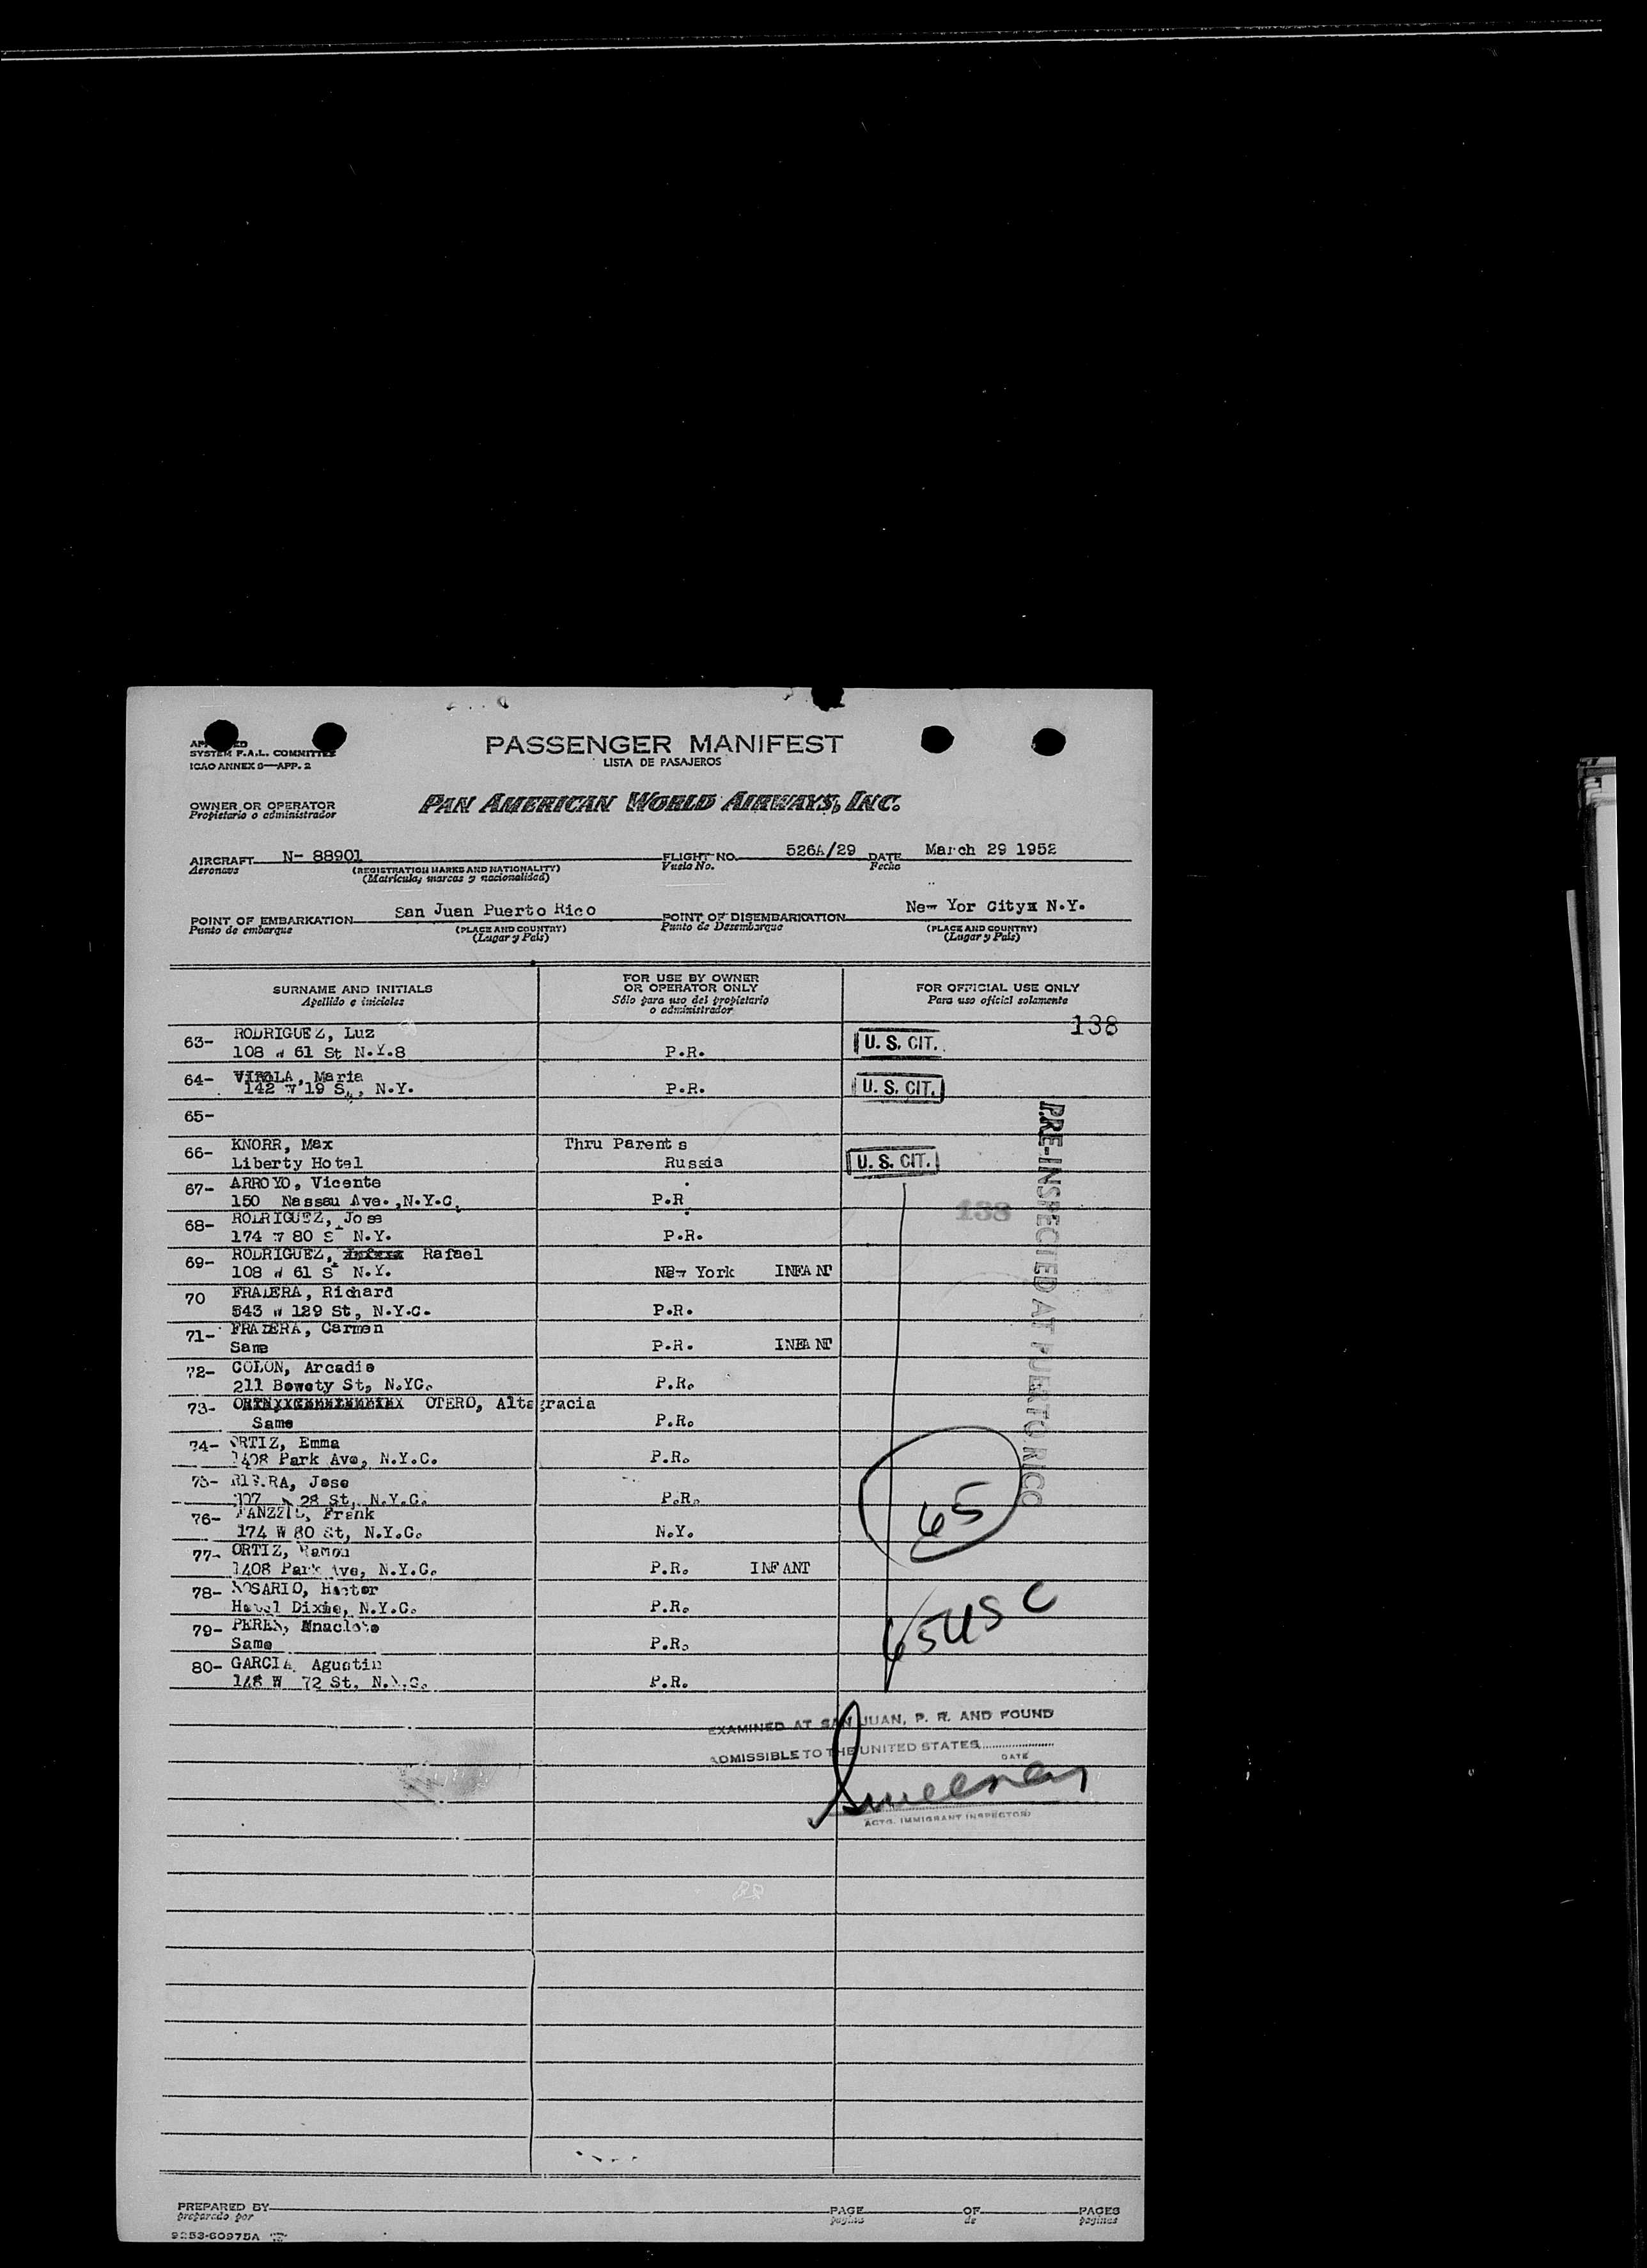 APPROVED
SYSTEM F.A.L. COMMITTEE
ICAO ANNEX 9—APP. 2
PASSENGER MANIFEST
LISTA DE PASAJEROS
OWNER OR OPERATOR
Propietario o administrador
PAN AMERICAN WORLD AIRWAYS, INC.
AIRCRAFT N- 88901 FLIGHT NO. 526A/29 DATE March 29 1952
Aeronave (REGISTRATION MARKS AND NATIONALITY) Vuelo No. Fecha
(Matricula, marcas y nacionalidad)
POINT OF EMBARKATION San Juan Puerto Rico POINT OF DISEMBARKATION New Yor City N.Y.
Punto de embarque (PLACE AND COUNTRY) Punto de Desembarque (PLACE AND COUNTRY)
(Lugar y País) (Lugar y País)
SURNAME AND INITIALS FOR USE BY OWNER OR OPERATOR ONLY FOR OFFICIAL USE ONLY
Apellido e iniciales Sólo para uso del propietario o administrador Para uso oficial solamente
138
63- RODRIGUEZ, Luz
108 W 61 St N.Y.8 P.R. U. S. CIT.
64- VIROLA, Maria
142 W 19 St, N.Y. P.R. U. S. CIT.
65-
66- KNORR, Max Thru Parents
Liberty Hotel Russia U. S. CIT.
67- ARROYO, Vicente
150 Nassau Ave.,N.Y.C. P.R
138
68- RODRIGUEZ, Jose
174 W 80 St N.Y. P.R.
69- RODRIGUEZ, Rafael
108 W 61 St N.Y. New York INFANT
70 FRADERA, Richard
543 W 129 St, N.Y.C. P.R.
71- FRADERA, Carmen
Same P.R. INFANT
72- COLON, Arcadie
211 Bowety St, N.YC. P.R.
73- OTERO, Altagracia
Same P.R.
74- ORTIZ, Emma
1408 Park Ave, N.Y.C. P.R.
75- RIVERA, Jose
28 St, N.Y.C. P.R.
76- Frank
174 W 80 St, N.Y.C. N.Y.
77- ORTIZ, Ramon
1408 Park Ave, N.Y.C. P.R. INFANT
78- ROSARIO, Hector
Hotel Dixie, N.Y.C. P.R.
79- PERES, Anaclete
Same P.R.
80- GARCIA, Agustin
148 W 72 St, N.Y.C. P.R.
PRE-INSPECTED AT PUERTO RICO
65
65 USC
EXAMINED AT SAN JUAN, P. R. AND FOUND
ADMISSIBLE TO THE UNITED STATES
DATE
Sweeney
ACTG. IMMIGRANT INSPECTOR
PREPARED BY PAGE OF PAGES
preparado por pagina de paginas
9253-60975A